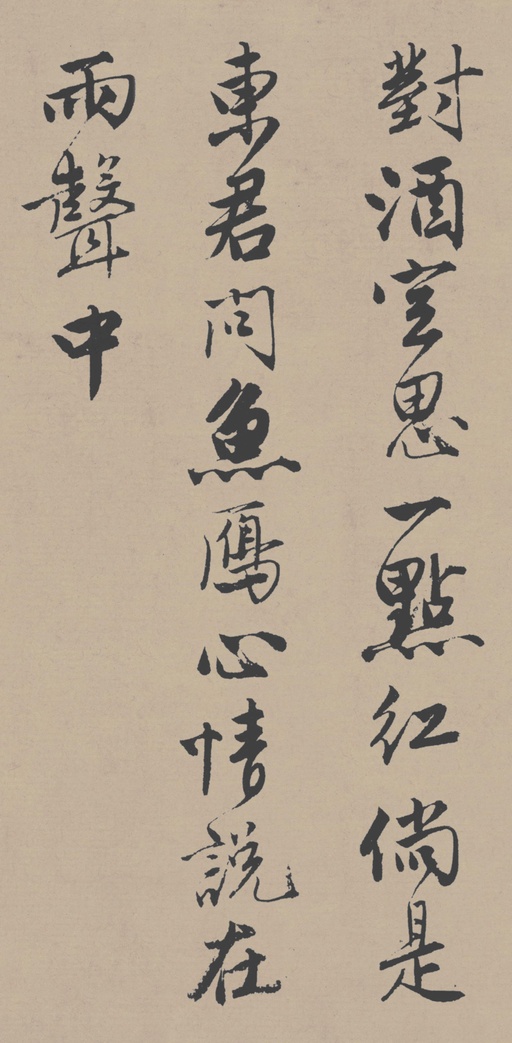 對酒空思一點紅倘是
東君問魚雁心情說在
雨聲中